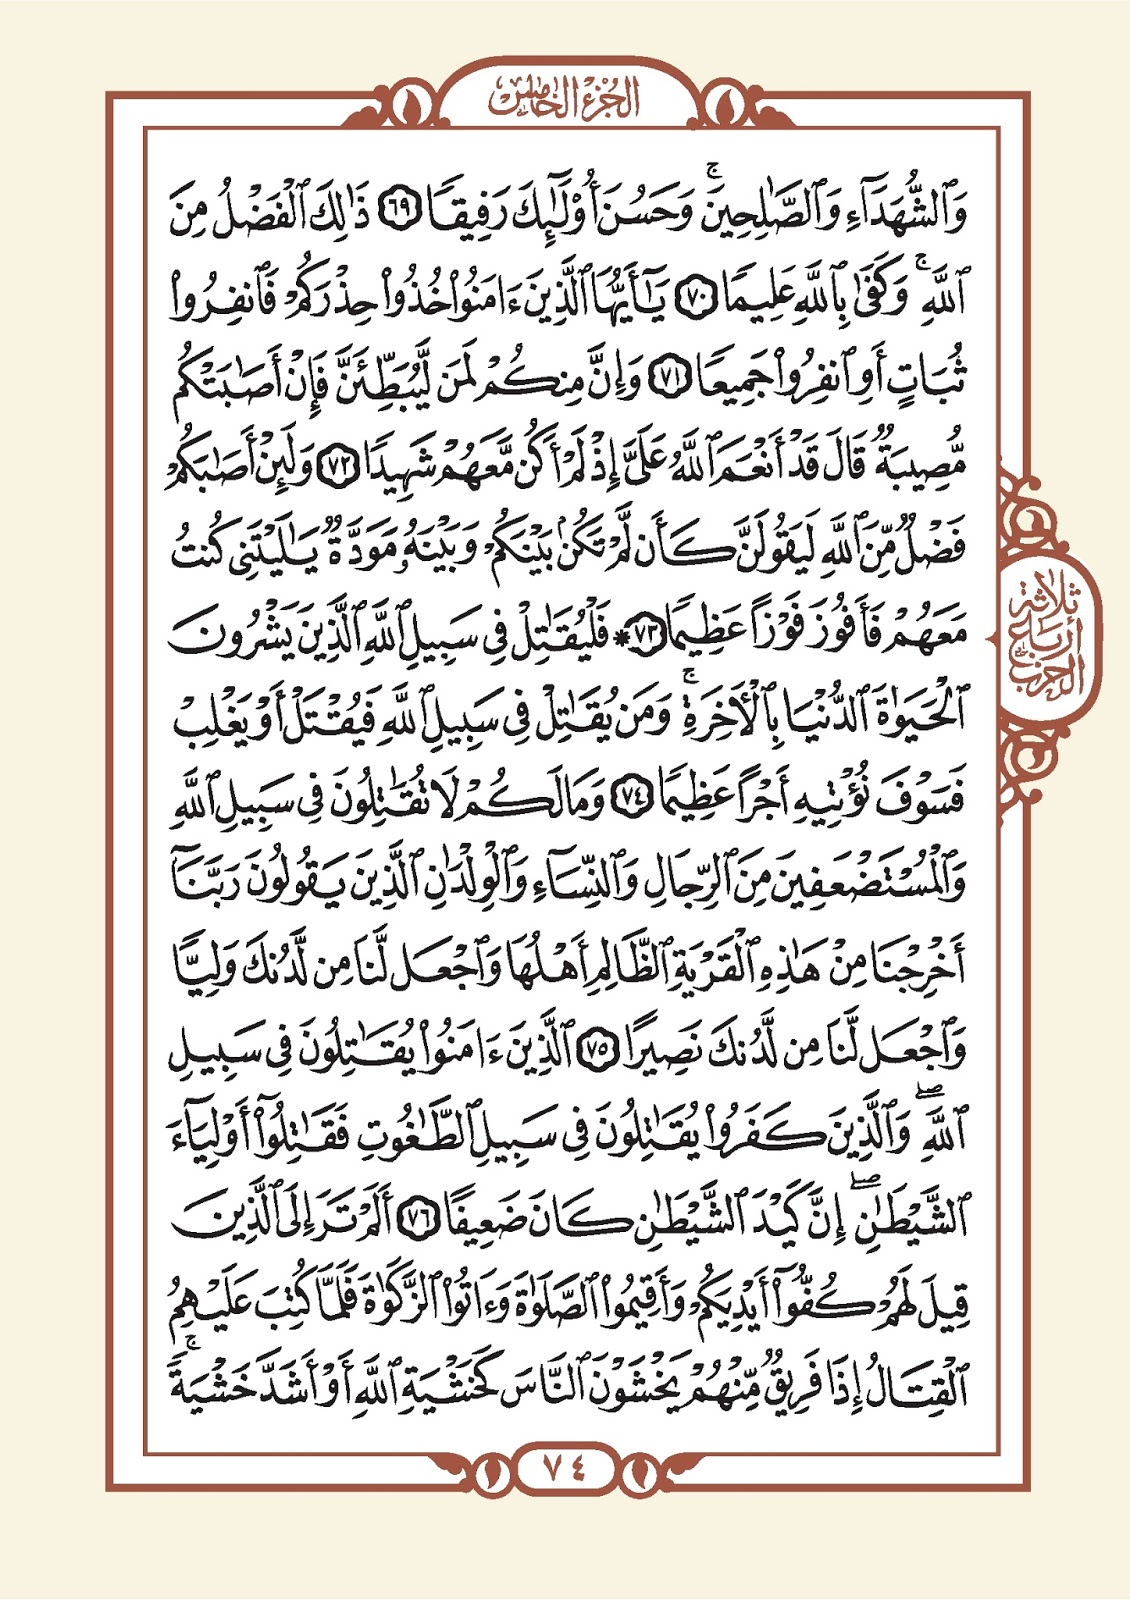 الجزء الخامس
وَٱلشُّهَدَآءِ وَٱلصَّٰلِحِينَۚ وَحَسُنَ أُوْلَٰٓئِكَ رَفِيقٗا ٦٩ ذَٰلِكَ ٱلۡفَضۡلُ مِنَ
ٱللَّهِۚ وَكَفَىٰ بِٱللَّهِ عَلِيمٗا ٧٠ يَٰٓأَيُّهَا ٱلَّذِينَ ءَامَنُواْ خُذُواْ حِذۡرَكُمۡ فَٱنفِرُواْ
ثُبَاتٍ أَوِ ٱنفِرُواْ جَمِيعٗا ٧١ وَإِنَّ مِنكُمۡ لَمَن لَّيُبَطِّئَنَّ فَإِنۡ أَصَٰبَتۡكُم
مُّصِيبَةٞ قَالَ قَدۡ أَنۡعَمَ ٱللَّهُ عَلَيَّ إِذۡ لَمۡ أَكُن مَّعَهُمۡ شَهِيدٗا ٧٢ وَلَئِنۡ أَصَٰبَكُمۡ
فَضۡلٞ مِّنَ ٱللَّهِ لَيَقُولَنَّ كَأَن لَّمۡ تَكُنۢ بَيۡنَكُمۡ وَبَيۡنَهُۥ مَوَدَّةٞ يَٰلَيۡتَنِي كُنتُ
مَعَهُمۡ فَأَفُوزَ فَوۡزًا عَظِيمٗا ٧٣ * فَلۡيُقَٰتِلۡ فِي سَبِيلِ ٱللَّهِ ٱلَّذِينَ يَشۡرُونَ
ثلاثة أرباع الحزب
ٱلۡحَيَوٰةَ ٱلدُّنۡيَا بِٱلۡأٓخِرَةِۚ وَمَن يُقَٰتِلۡ فِي سَبِيلِ ٱللَّهِ فَيُقۡتَلۡ أَوۡ يَغۡلِبۡ
فَسَوۡفَ نُؤۡتِيهِ أَجۡرًا عَظِيمٗا ٧٤ وَمَا لَكُمۡ لَا تُقَٰتِلُونَ فِي سَبِيلِ ٱللَّهِ
وَٱلۡمُسۡتَضۡعَفِينَ مِنَ ٱلرِّجَالِ وَٱلنِّسَآءِ وَٱلۡوِلۡدَٰنِ ٱلَّذِينَ يَقُولُونَ رَبَّنَآ
أَخۡرِجۡنَا مِنۡ هَٰذِهِ ٱلۡقَرۡيَةِ ٱلظَّالِمِ أَهۡلُهَا وَٱجۡعَل لَّنَا مِن لَّدُنكَ وَلِيّٗا
وَٱجۡعَل لَّنَا مِن لَّدُنكَ نَصِيرًا ٧٥ ٱلَّذِينَ ءَامَنُواْ يُقَٰتِلُونَ فِي سَبِيلِ
ٱللَّهِۖ وَٱلَّذِينَ كَفَرُواْ يُقَٰتِلُونَ فِي سَبِيلِ ٱلطَّٰغُوتِ فَقَٰتِلُوٓاْ أَوۡلِيَآءَ
ٱلشَّيۡطَٰنِۖ إِنَّ كَيۡدَ ٱلشَّيۡطَٰنِ كَانَ ضَعِيفًا ٧٦ أَلَمۡ تَرَ إِلَى ٱلَّذِينَ
قِيلَ لَهُمۡ كُفُّوٓاْ أَيۡدِيَكُمۡ وَأَقِيمُواْ ٱلصَّلَوٰةَ وَءَاتُواْ ٱلزَّكَوٰةَ فَلَمَّا كُتِبَ عَلَيۡهِمُ
ٱلۡقِتَالُ إِذَا فَرِيقٞ مِّنۡهُمۡ يَخۡشَوۡنَ ٱلنَّاسَ كَخَشۡيَةِ ٱللَّهِ أَوۡ أَشَدَّ خَشۡيَةٗۚ
٧٤